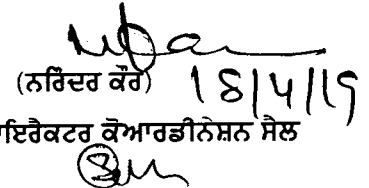 (ਨਰਿੰਦਰ ਕੌਰ) 18/4/19
ਾਇਰੈਕਟਰ ਕੋਆਰਡੀਨੇਸ਼ਨ ਸੈਲ